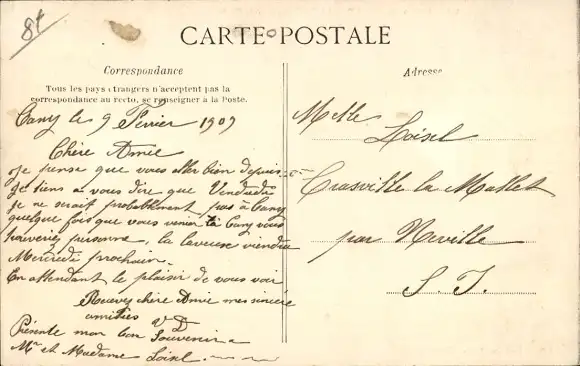 8f
CARTE POSTALE
Correspondance
Tous les pays étrangers n'acceptent pas la
correspondance au recto, se renseigner à la Poste.
Cany le 9 Février 1909
Chère Amie
Je pense que vous aller bien depuis
Je viens vous dire que Vendredi
je ne serait probablement pas à Cany
quelque fois que vous venir à Cany vous
trouveriez personne, la laveuse viendra
Mercredi prochain.
En attendant le plaisir de vous voir
Recevez chère Amie mes sincère
amitiés V D
Présente mon bon Souvenir a
Mr et Madame Loisel.
Adresse
Loisel
Crasville la Mallet
par Néville
S. I.